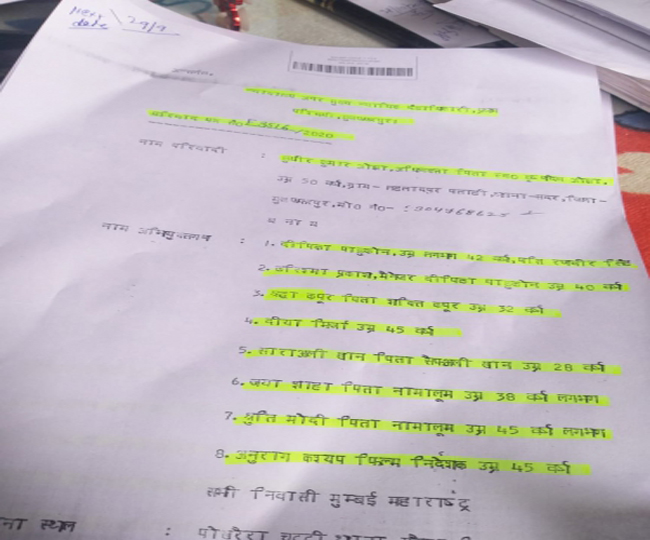 Next date 29/9
न्यायालय अपर मुख्य न्यायिक दण्डाधिकारी,
पश्चिमी,मुजफ्फरपुर
परिवाद पत्र सं0 /2020
नाम परिवादी : सुधीर कुमार ओझा,अधिवक्ता पिता स्व0 ओझा,
उम्र 50 वर्ष,ग्राम- जिला-
मुजफ्फरपुर,मो0 नं0-
ब ना म
नाम अभियुक्तगण : 1. दीपिका पादुकोन,उम्र लगभग 42 वर्ष,पति रणवीर सिंह
2. करिशमा प्रकाश,मैनेजर दीपिका पादुकोन उम्र 40 वर्ष
3. श्रद्धा कपूर पिता शक्ति कपूर उम्र 32 वर्ष
4. दीया मिर्जा उम्र 45 वर्ष
5. साराअली खान पिता सैफअली खान उम्र 28 वर्ष
6. जया शाहा पिता नामालूम उम्र 38 वर्ष लगभग
7. श्रुति मोदी पिता नामालूम उम्र 45 वर्ष लगभग
8. अनुराग कश्यप फिल्म निर्देशक उम्र 45 वर्ष
सभी निवासी मुम्बई महाराष्ट्र
स्थान :